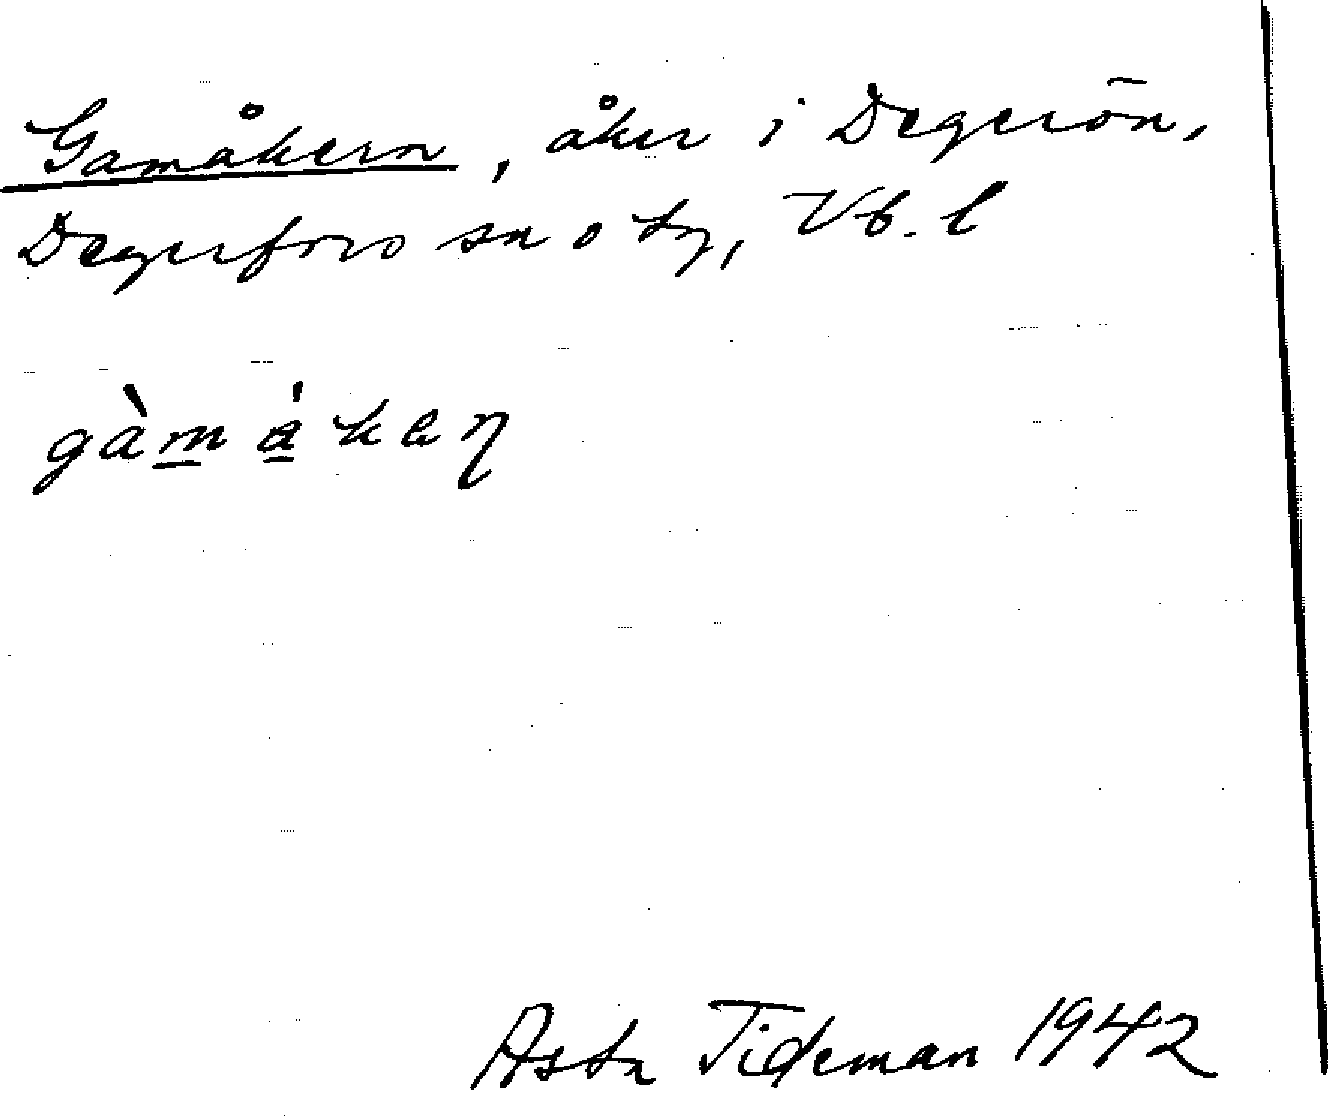 Gamåkern, åker i Degerön,
Degerfors sn o tg, Vb. l
gàmåkaɳ
Asta Tideman 1942